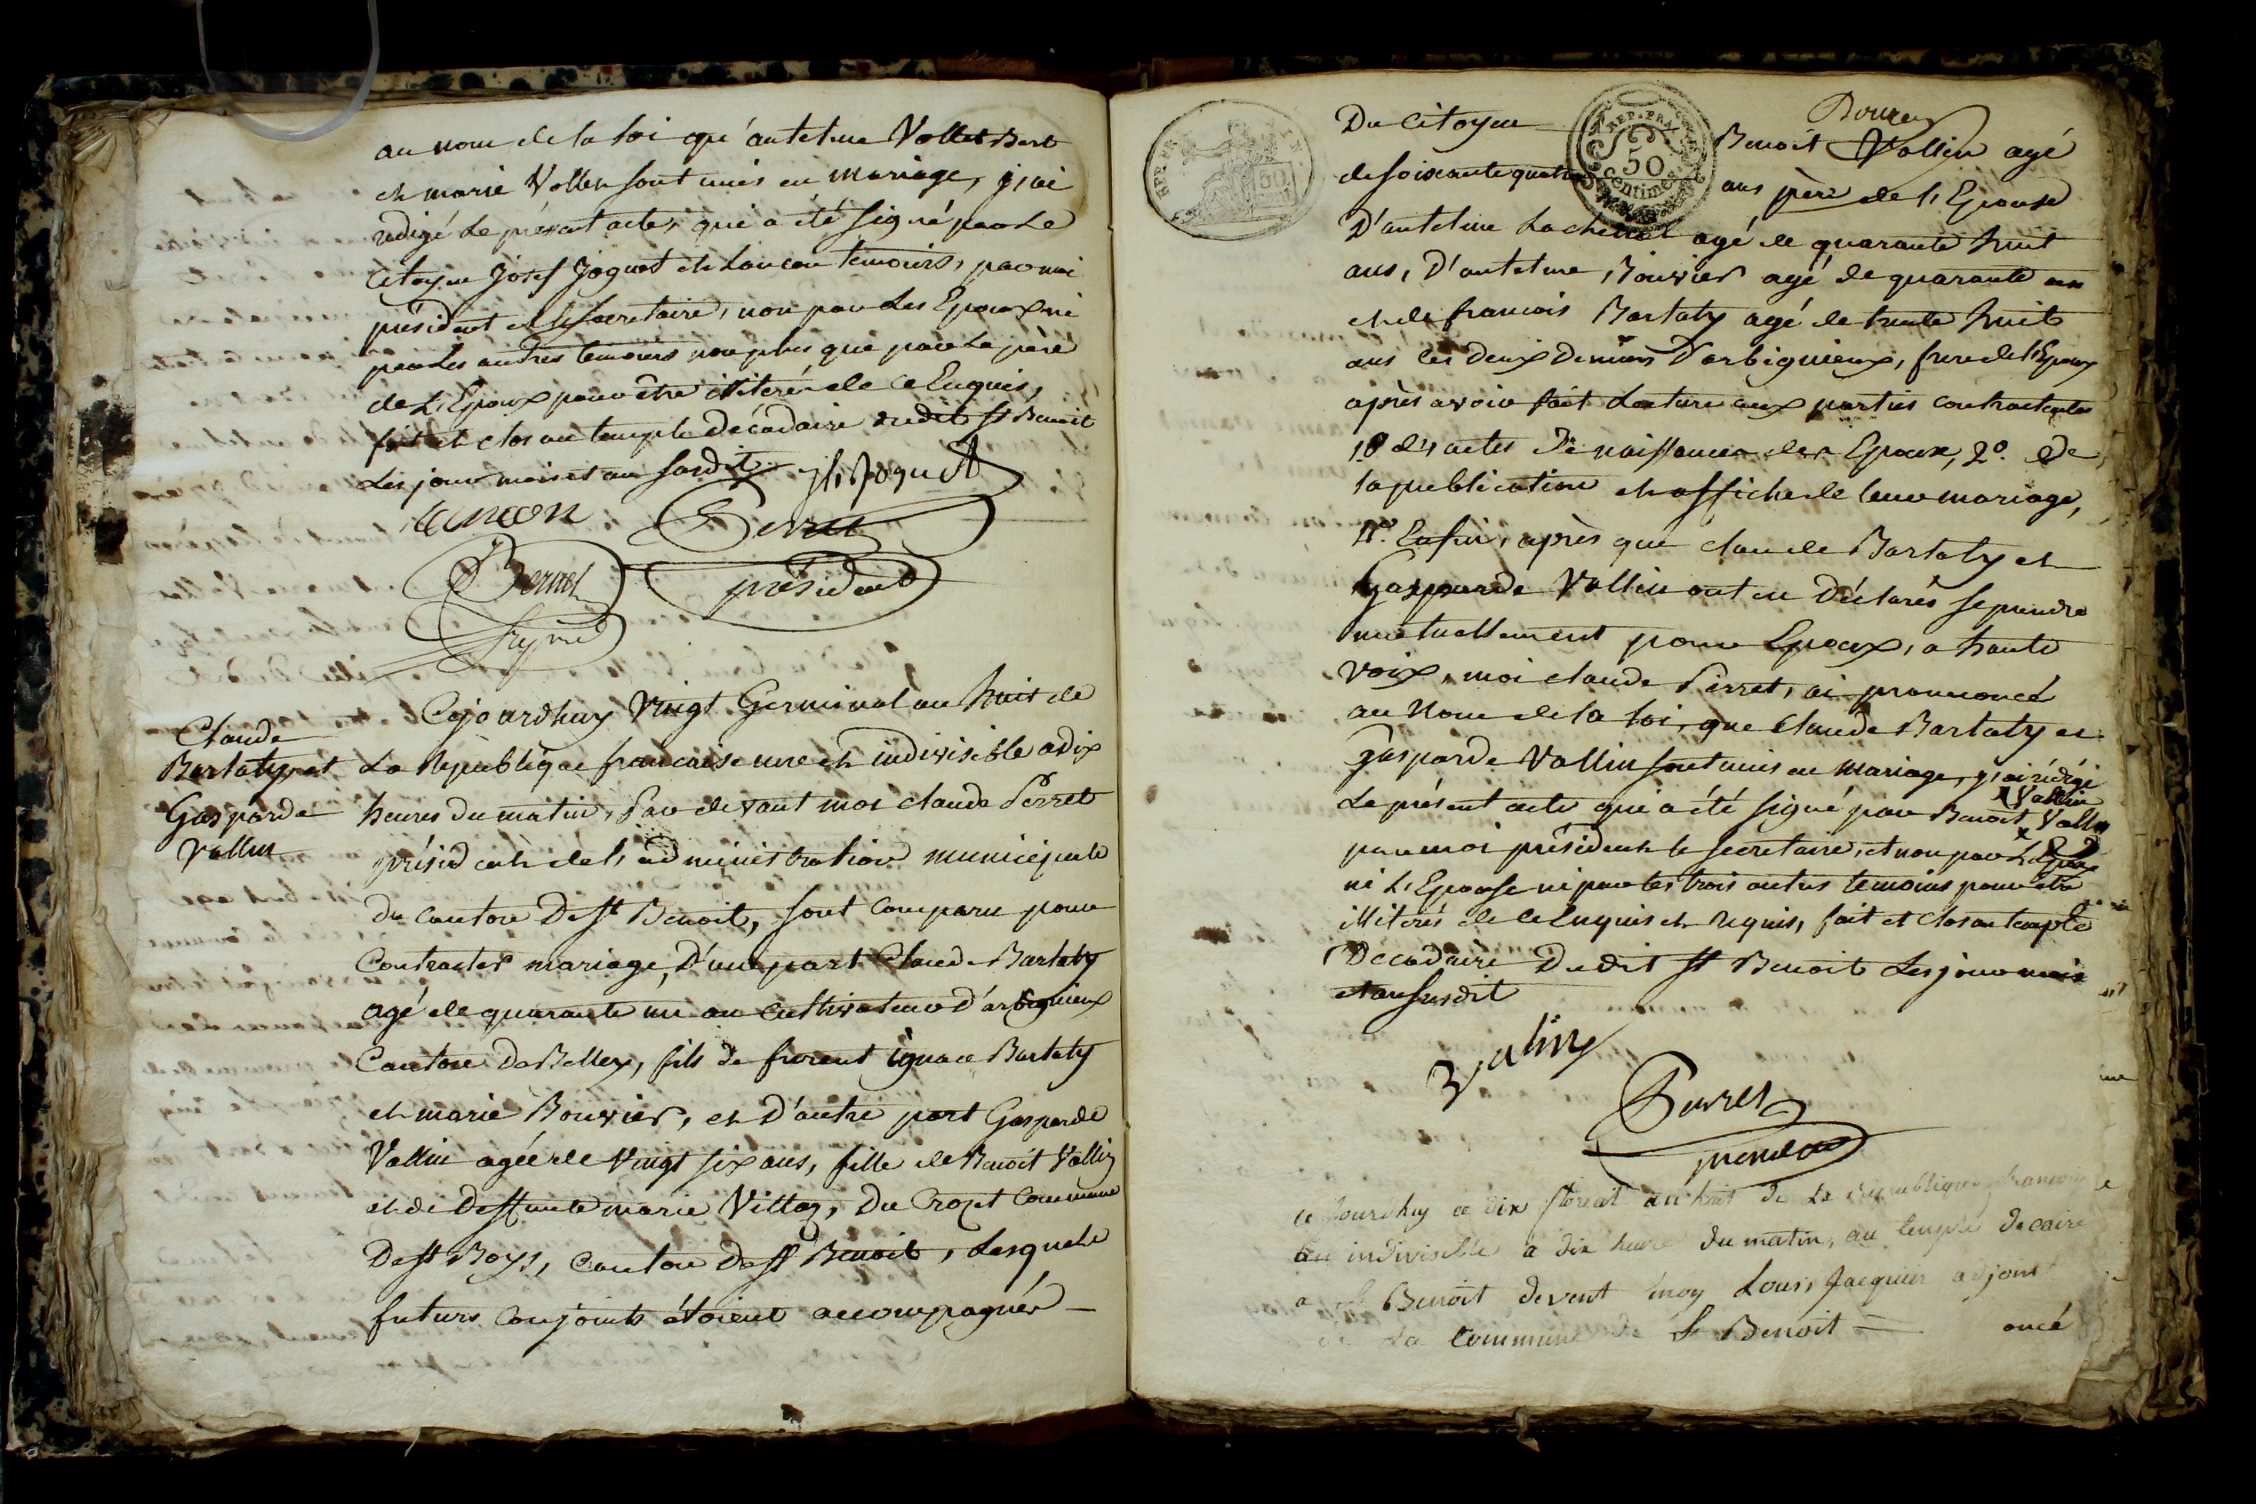 au nom de la loi que antelme Vollet Bert
et marie Vollen sont unis en mariage, j'ai
redigé le présent acte, qui a été signé par le
Citoyen Josef Joguet et Lancon temoins, par moi
président et le secretaire, non par les Epoux ni
par les autres temoins non plus que par le père
de L'Epoux pour être illiterés de ce Enquis,
fait et clos au temple Décadaire dudit St Benoit
les jour mois et an susdit jh Joguet
Lancon Perret
Bernel président
Claude
Bartaty et
Gasparde
Vallin
Cejourdhuy Vingt Germinal an huit de
La République francaise une et indivisible a dix
heures du matin, Par devant moi claude Perret
président de l'administration municipale
du canton De St Benoit, sont comparu pour
Contracter mariage, D'une part Claude Bartaty
agé de quarante un an cultivateur d'arbignieux
Canton de Belley, fils de furent ignace Bartaty
et marie Bouvier, et D'autre part Gasparde
Vallin agée de Vingt six ans, fille de Benoit Vallin
et de deffunte marie Vittoz, Du Crozet Commune
De St Boys, Canton De St Benoit, Lesquels
futurs Conjoints étoient accompagnés
REP. FRA.
50
centimes
Du Citoyen Benoit Vallin agé
de soixante quatre ans père de l'Epouse
D'antelme Lachenal agé de quarante huit
ans, D'antelme Bouvier agé de quarante un
et de francois Bartaty agé de trente huit
ans les deux derniers D'arbignieux, frere de l'Epoux
après avoir fait Lecture aux parties contractantes
1º des actes de naissances des Epoux, 2º. de
la publication et affiche de leur mariage,
Enfin, après que claude Bartaty et
Gasparde Vallin ont eu Déclarés se prendre
mutuellement pour Epoux, a haute
voix, moi claude Perret, ai prononcé
au Nom de la loi, que Claude Bartaty et
gasparde Vallin sont unis en mariage, j'ai rédigé
le présent acte qui a été signé par Benoit Vallin
Vallin
par moi président le secretaire, et non par L'Epoux
ni L'Epouse ni par les trois autres temoins pour être
illiterés de ce Enquis et requis, fait et clos au temple
Décadaire Dudit St Benoit Les jour mois
et an susdit
Vallin
Perret
président
ce jourdhuy ce dix floreal an huit de la république francoise
indivisible a dix heure du matin, au temple decaire
a St Benoit devent moy Louis Jacquin adjoint
de La commune de St Benoit oncé